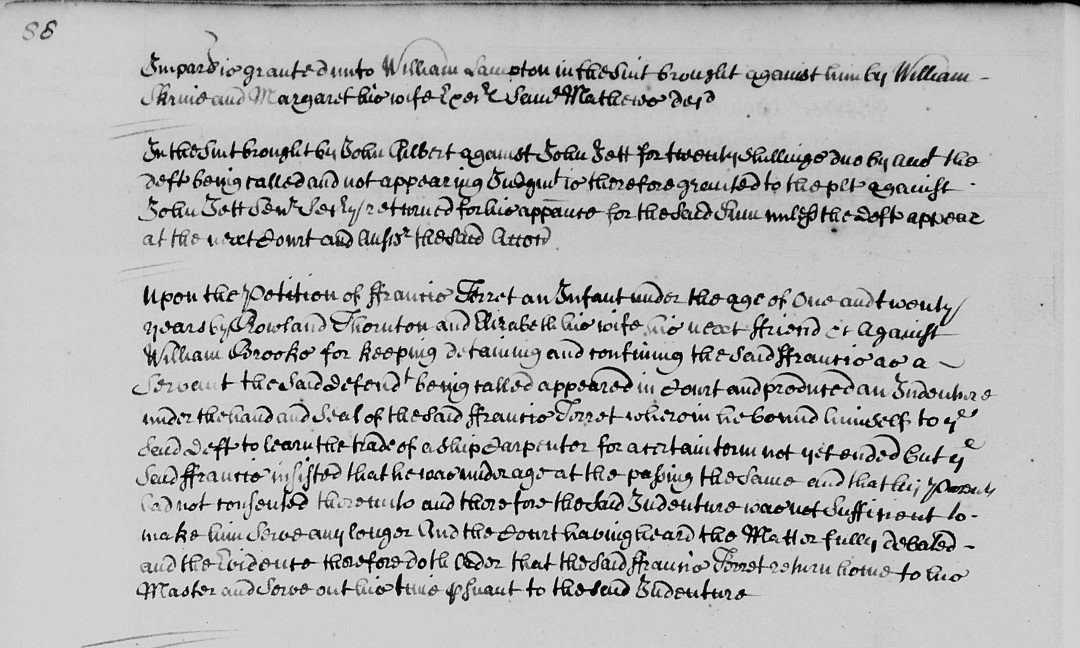 88
Imparl is granted unto William Lampton in the Suit brought against him by William
Skrine and Margaret his wife Exers Saml Mathews decd
In the Suit brought by John Gilbert against John Jett for twenty Shillings due by acct the
Deft being called and not appearing Judgmt is therefore granted to the plt against
John Jett Senr Secty returned for his appance for the said Sum unless the Deft appear
at the next Court and Answr the said Accon
Upon the Petition of ffrancis Ferret an Infant under the age of One and twenty
years by Rowland Thornton and Elizabeth his wife his next ffriend &c Against
William Brooke for keeping detaining and confining the said ffrancis as a
Servant the said defendt being called appeared in Court and produced an Indenture
under the hand and Seal of the said ffrancis Ferret wherein he bound himself to ye
said Deft to learn the trade of a Ship Carpenter for a certain term not yet ended but ye
said ffrancis insisted that he was under age at the passing the same and that his Parents
had not consensed thereunto and therefore the said Indenture was not Sufficient to
make him Serve any longer And the Court having heard the Matter fully Debated
and the Evidence therefore doth Order that the said ffrancis Ferret return home to his
Master and Serve out his time psuant to the said Indenture